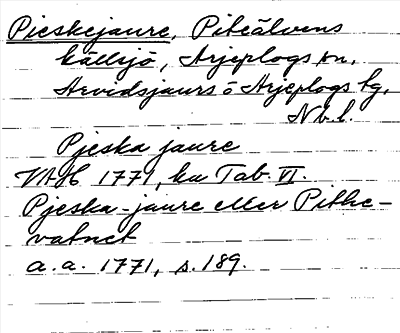 Pieskejaure, Piteälvens
källsjö, Arjeplogs sn,
Arvidsjaurs o Arjeplogs tg,
Nb.l.
Pjeska jaure
VAH 1771, ka Tab. VI.
Pjeska-jaure eller Pithe-
vatnet
a.a. 1771, s. 189.